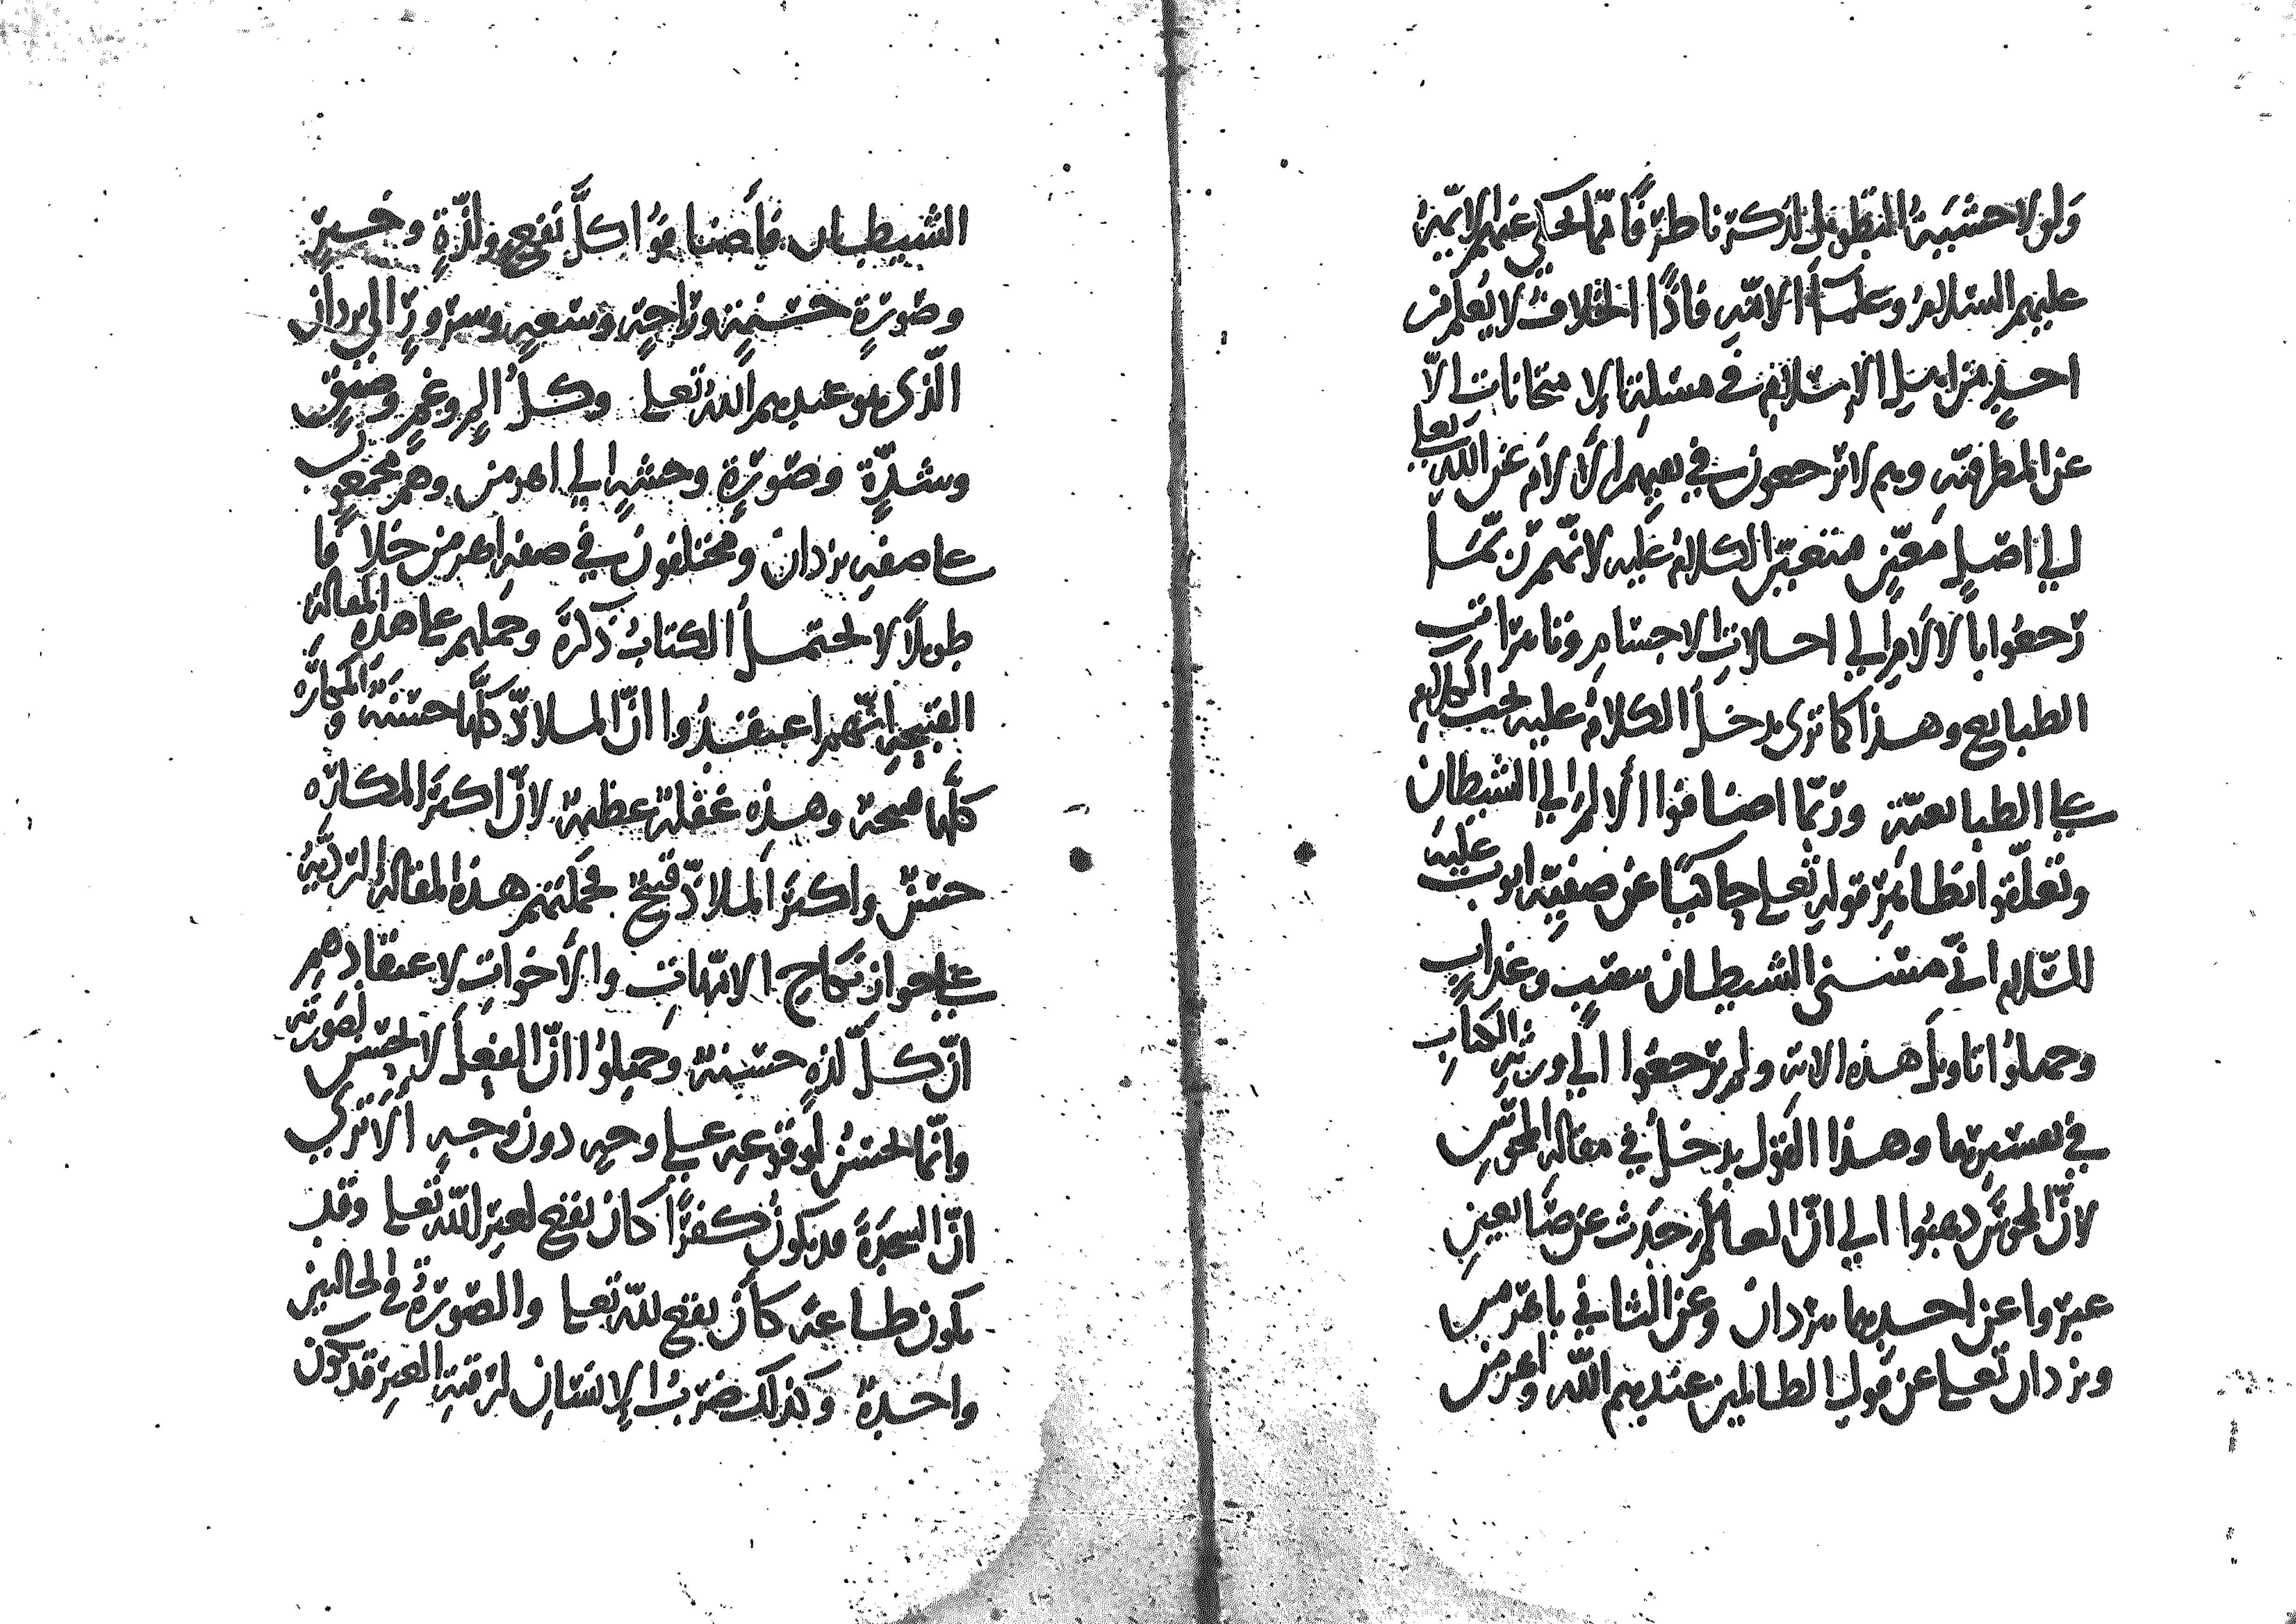 ولولا خشية التطويل لذكرنا طرفا مما يحكى عنهم الائمة
عليهم السلام وعلماء الامة فاذا الخلاف لا يعلم من
احد من اهل الاسلام في مسئلة الامتحانات الا
عن المطرفية وهم لا يرجعون في نفيهم الالام عن الله تعلى
الى اصل معين فنعين الكلام عليه لانهم ربما
رجعوا بالالام الى احالات الاجسام وتاثيرات
الطبايع وهذا كما ترى يدخل الكلام عليه تحت الكلام
على الطبايعية وربما اضافوا الالم الى الشيطان
وتعلقوا بظاهر قوله تعلى حاكيا عن صفيه ايوب عليه
السلام اني مسني الشيطان بنصب وعذاب
وحملوا تاويل هذه الاية ولم يرجعوا الى ورثة الكتاب
في تفسيرها وهذا القول يدخل في مقالة المجوس
لان المجوس ذهبوا الى ان العالم حدث عن صانعين
عبروا عن احدهما بيزدان وعن الثاني باهرمن
ويزدان تعلى عن قول الظالمين عندهم الله واهرمن
الشيطان فاضافوا كل نفع ولذة وخير
وصورة حسنة وراحة وسعة وسرور الى يزدان
الذي هو عندهم الله تعلى وكل الم وغم وضيق
وشدة وصورة وحشة الى اهرمن وهم مجمعون
على صفة يزدان ومختلفون في صفة اهرمن خلافا
طويلا لا يحتمل الكتاب ذكره وحملهم على هذه المقالة
القبيحة انهم اعتقدوا ان الملاذ كلها حسنة والمكاره
كلها قبيحة وهذه غفلة عظيمة لان اكثر المكاره
حسن واكثر الملاذ قبيح فحملتهم هذه المقالة الردية
على جواز نكاح الامهات والاخوات لاعتقادهم
ان كل لذة حسنة وجهلوا ان الفعل لا يحسن لصورته
وانما يحسن لوقوعه على وجه دون وجه الا ترى
ان السجدة قد يكون كفرا كان يقع لغير الله تعلى وقد
يكون طاعة كان يقع لله تعلى والصورة في الحالين
واحدة وكذلك ضرب الانسان لرقبة الغير قد يكون